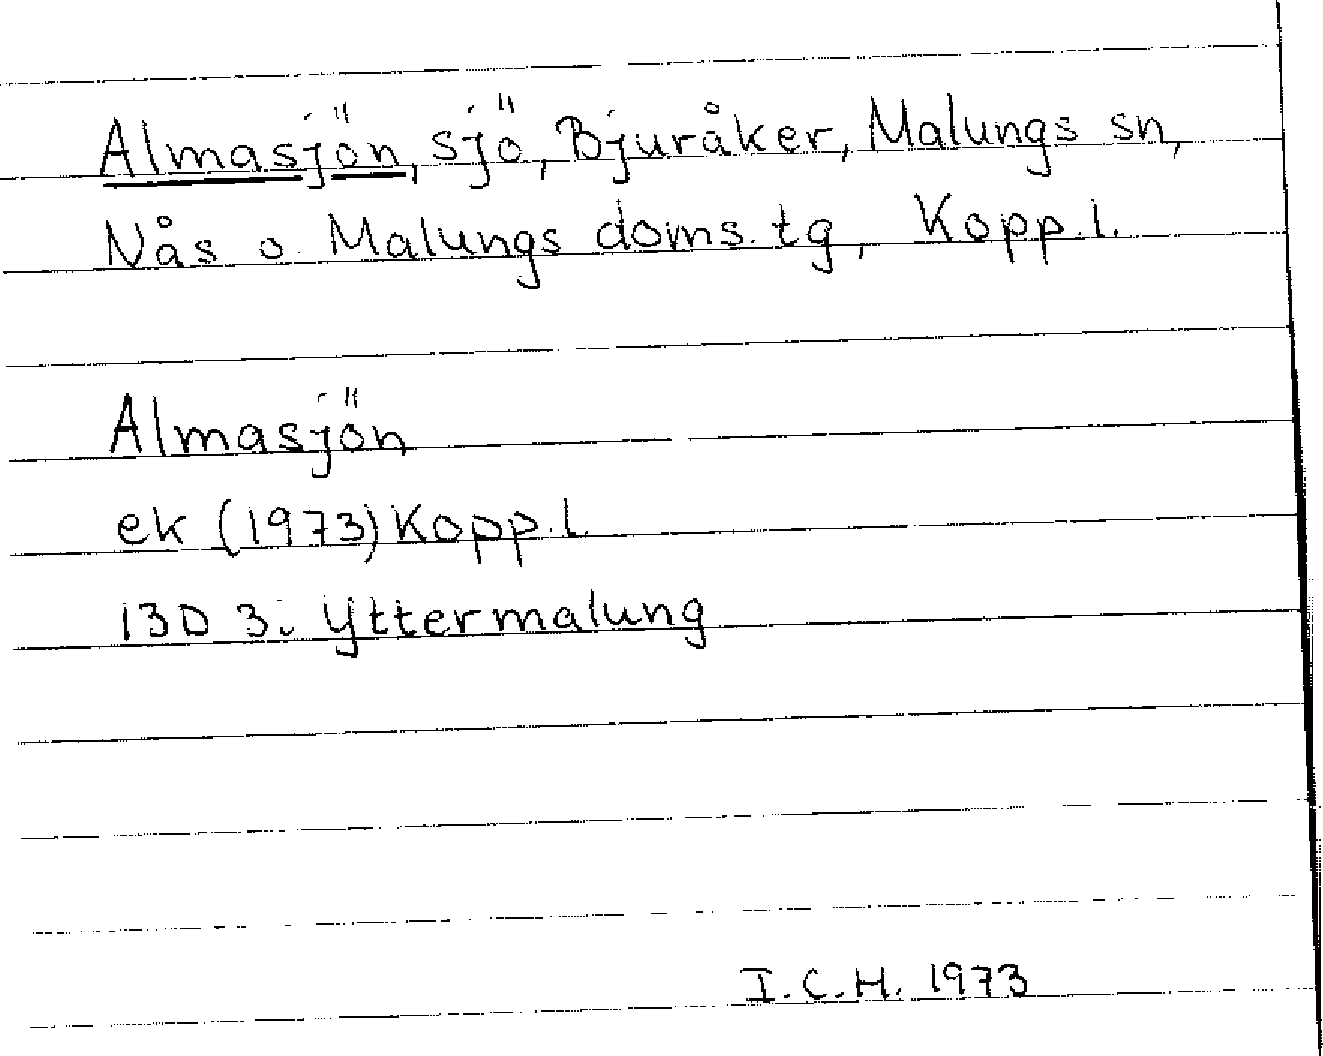 Almasjön, sjö, Bjuråker, Malungs sn,
Nås o. Malungs doms.tg, Kopp.l.
Almasjön
ek (1973) Kopp.l.
13D 3i Yttermalung
I.C.H. 1973